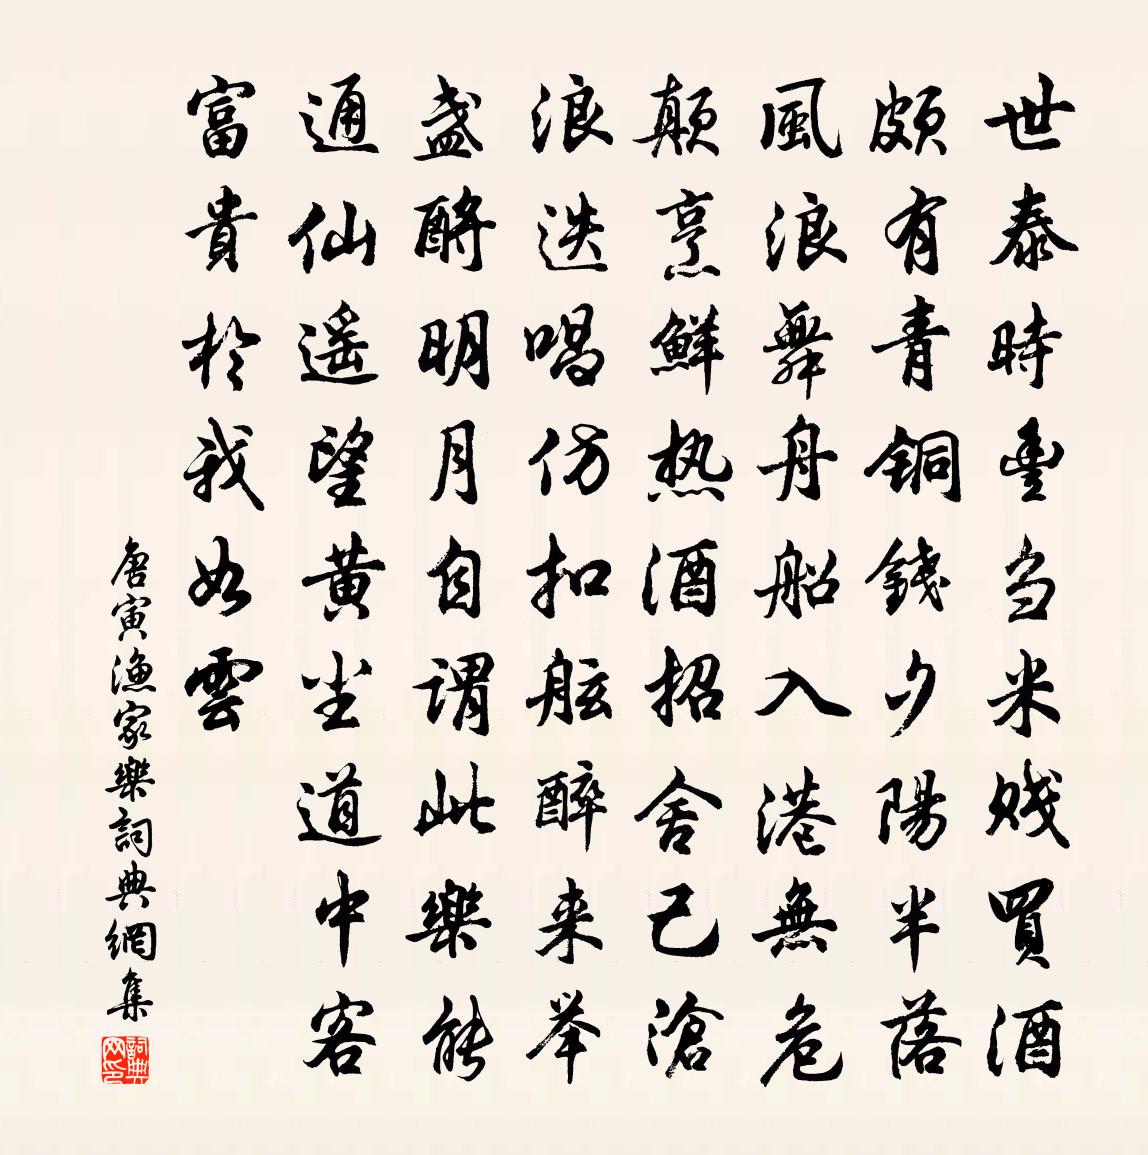 世泰時豐刍米贱買酒
頗有青銅錢夕陽半落
風浪舞舟船入港無危
顛烹鮮热酒招舍己滄
浪迭唱仿扣舷醉来举
盞酹明月自謂此樂能
通仙遥望黄尘道中客
富貴於我如雲
唐寅漁家樂詞典網集
詞典网印